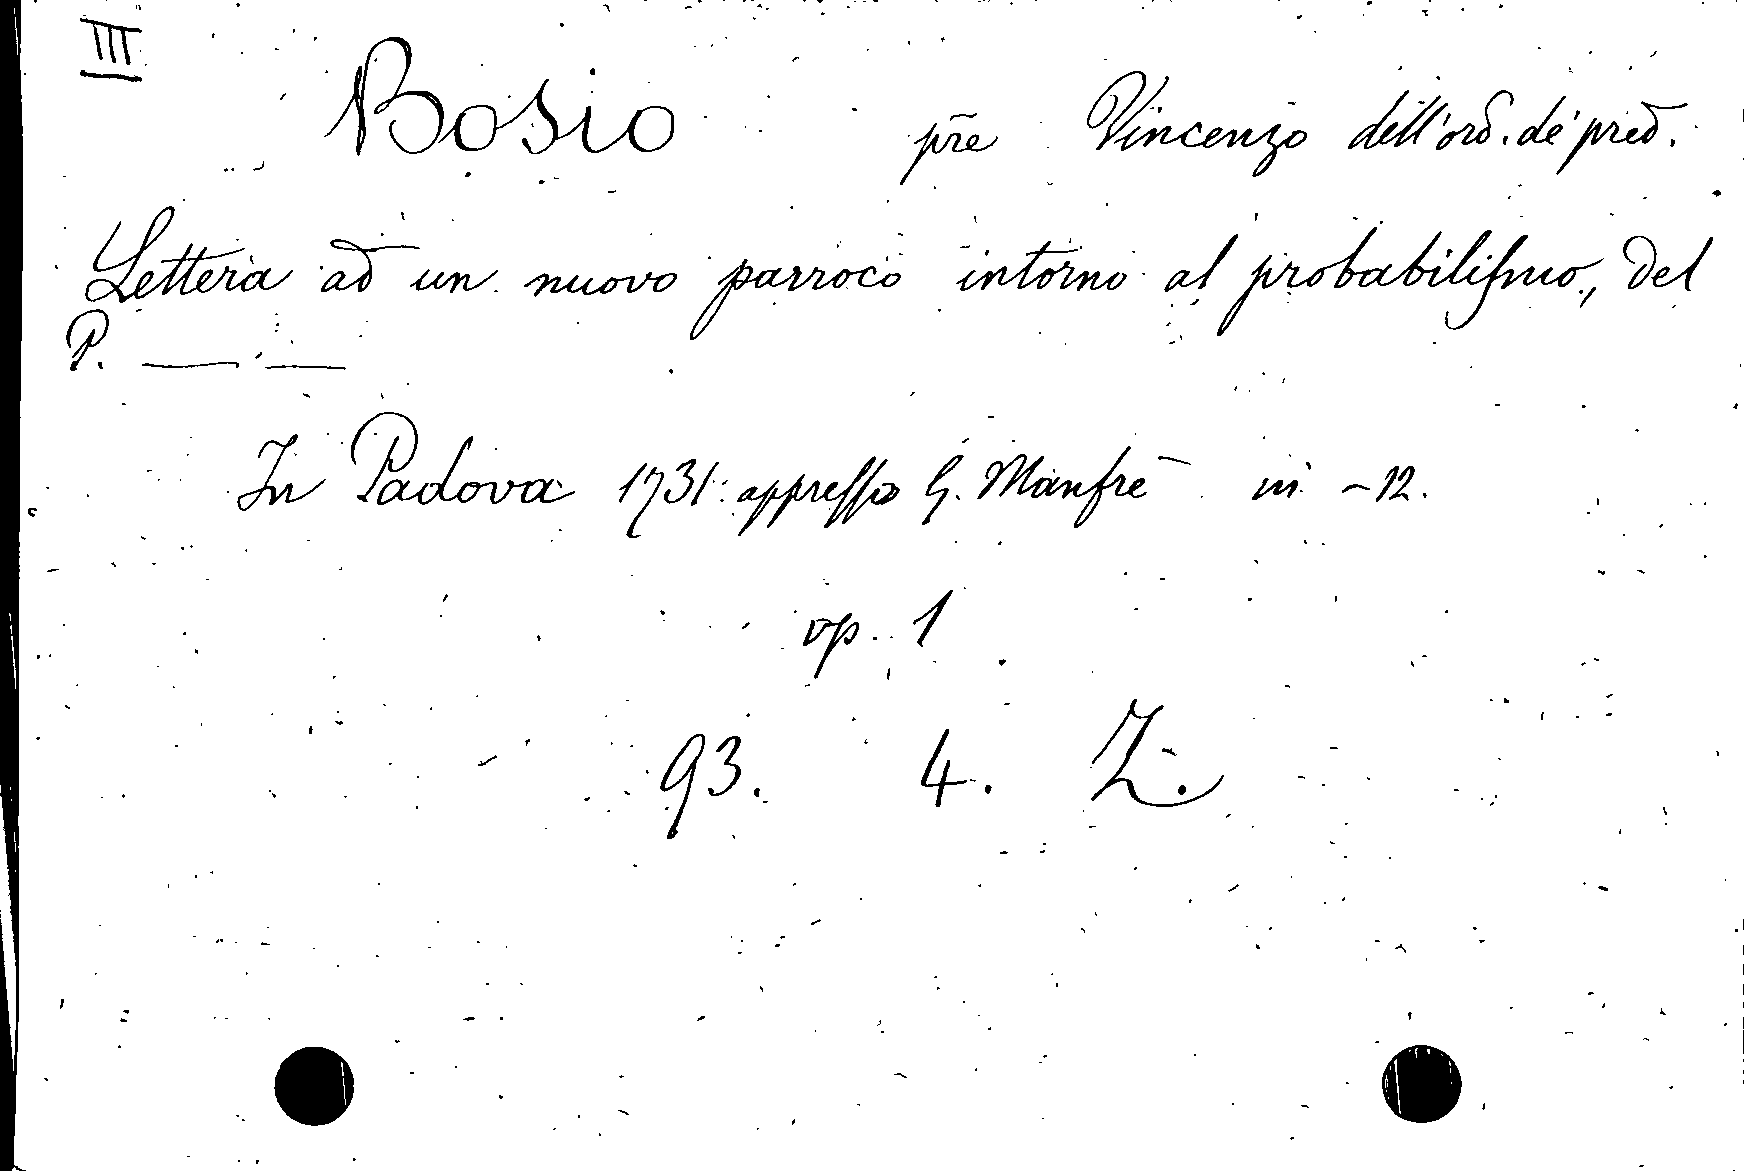 III
Bosio pr̃e Vincenzo dell'ord. de' pred.
Lettera ad un nuovo parroco intorno al probabiliſmo, del
P. —— ——
In Padova 1731 appreſſo G. Manfrè in -12.
op. 1
93. 4. Z.